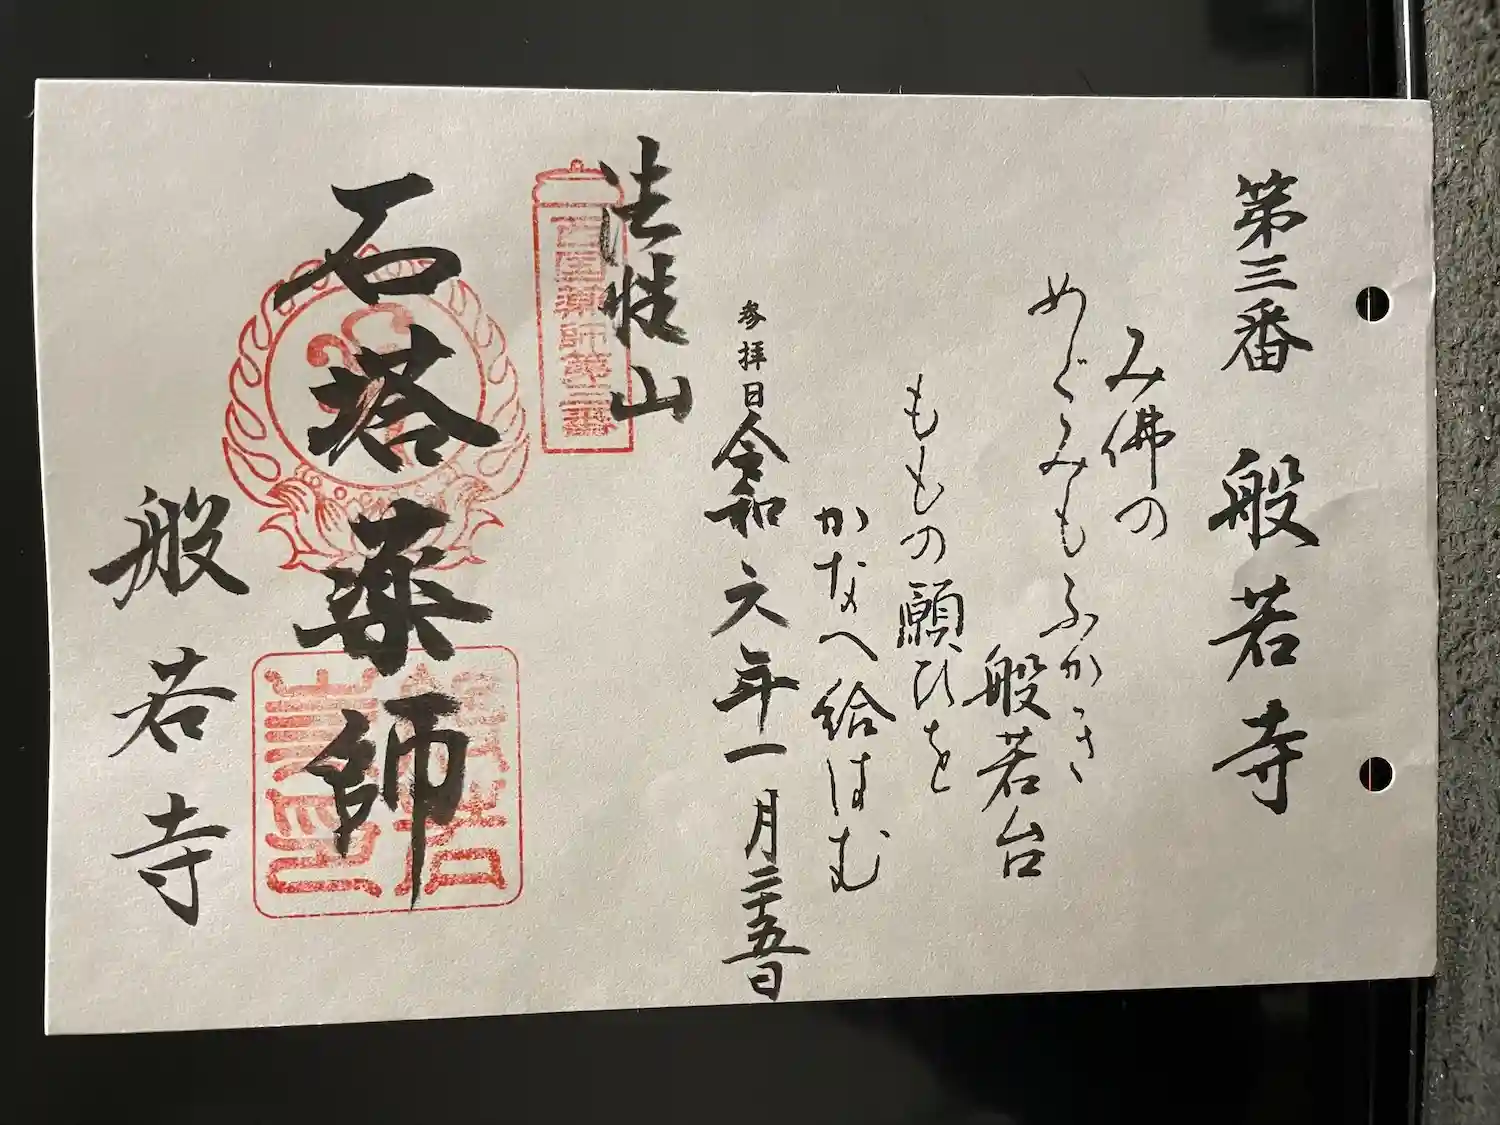 第三番 般若寺
み佛の
めぐみもふかき
般若台
ももの願ひを
かなへ給はむ
参拝日令和六年一月二十五日
法性山
西国薬師第三番
石塔薬師
般若寺